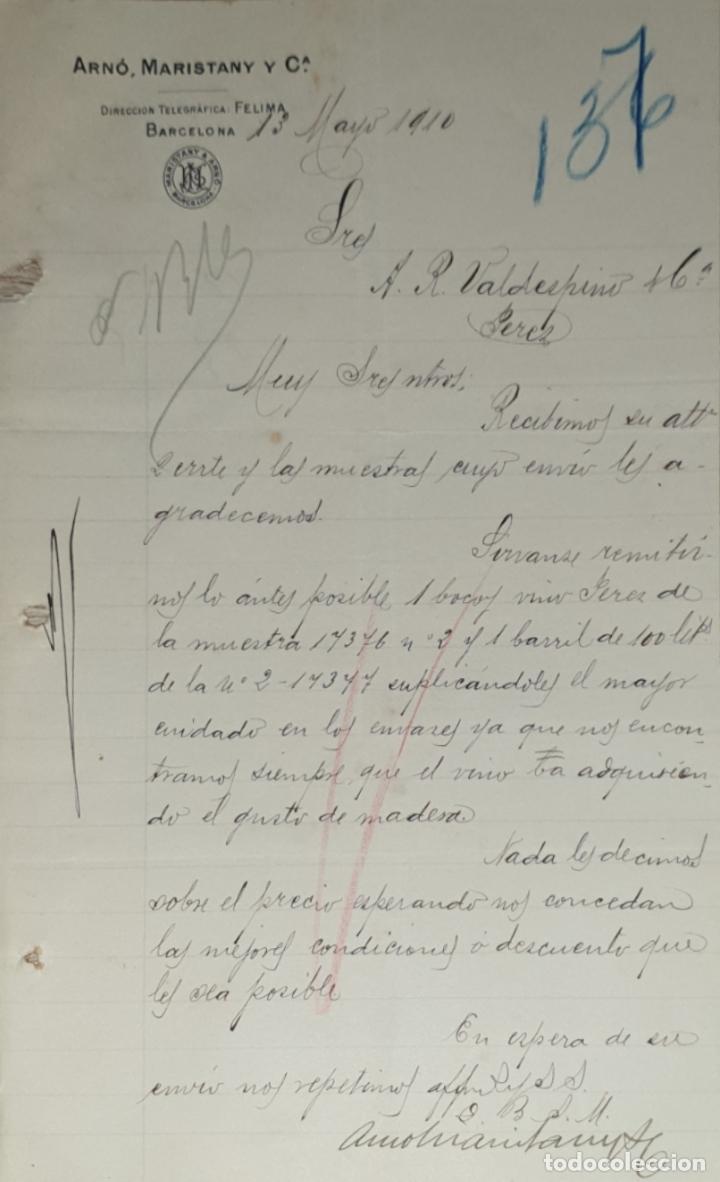 ARNÓ, MARISTANY Y Cª
DIRECCIÓN TELEGRÁFICA: FELIMA
BARCELONA 13 Mayo 1910
137
MARISTANY & ARNÓ
BARCELONA
Sres
A. R. Valdespino & Cª
Jerez
Muy Sres ntros;
Recibimos su attª
2 crrte y las muestras cuyo envio les a-
gradecemos.
Sirvanse remitir-
nos lo ántes posible 1 bocoy vino Jerez de
la muestra 17376 nº 2 y 1 barril de 100 lits
de la Nº 2-17377 suplicándoles el mayor
cuidado en los envases ya que nos encon-
tramos siempre que el vino va adquirien-
do el gusto de madera.
Nada les decimos
sobre el precio esperando nos concedan
las mejores condiciones ó descuento que
les sea posible
En espera de su
envío nos repetimos affmos S.S.
Q B S. M.
Arno Maristany y C
todocoleccion.net